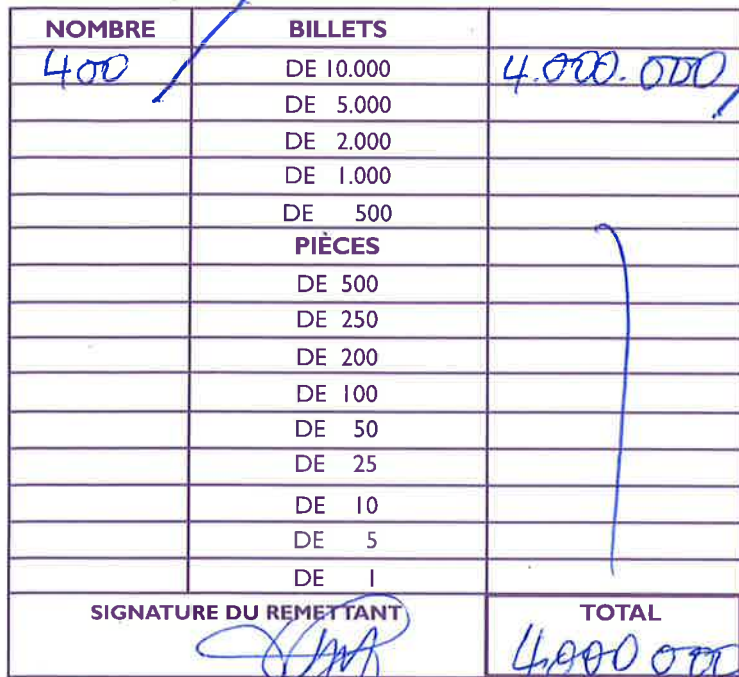 NOMBRE BILLETS
400 DE 10.000 4.000.000
DE 5.000
DE 2.000
DE 1.000
DE 500
PIÈCES
DE 500
DE 250
DE 200
DE 100
DE 50
DE 25
DE 10
DE 5
DE 1
SIGNATURE DU REMETTANT TOTAL
4.000 000